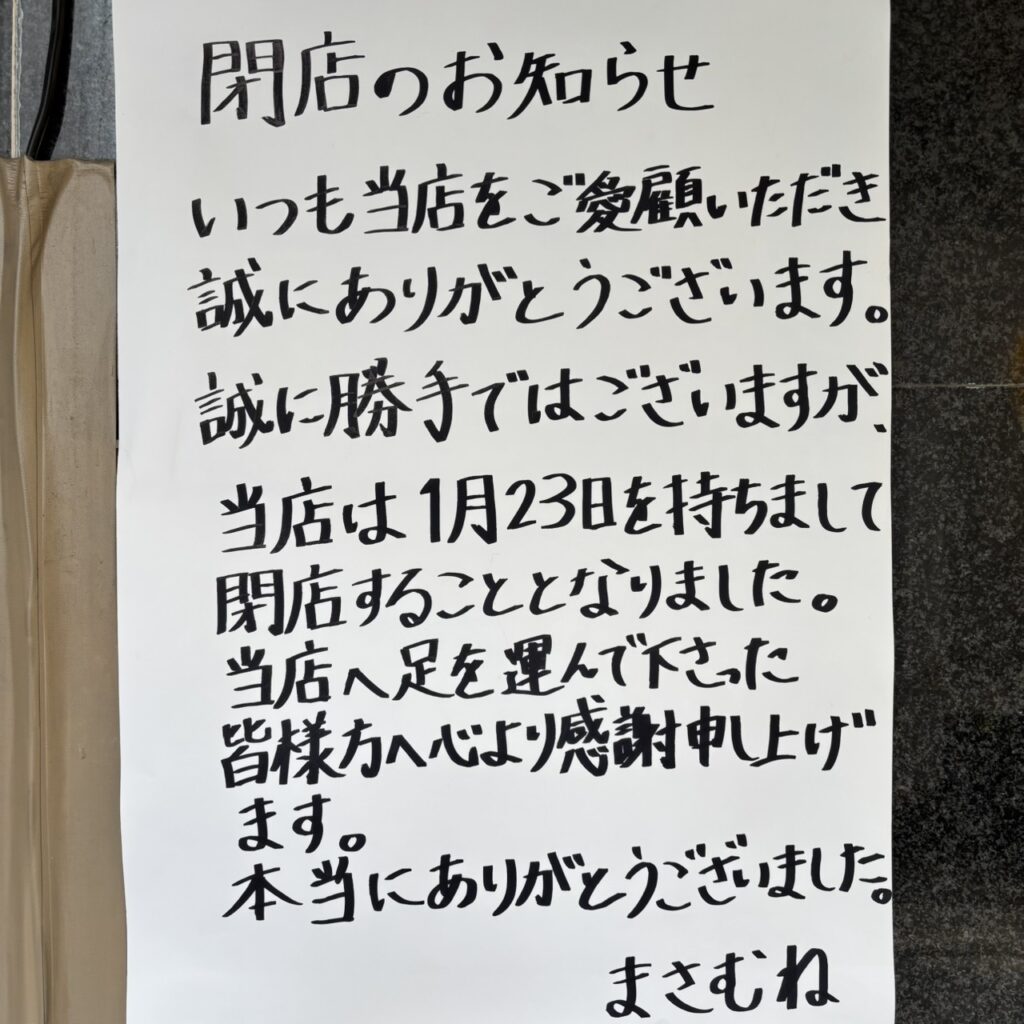 閉店のお知らせ
いつも当店をご愛顧いただき
誠にありがとうございます。
誠に勝手ではございますが、
当店は1月23日を持ちまして
閉店することとなりました。
当店へ足を運んで下さった
皆様方へ心より感謝申し上げ
ます。
本当にありがとうございました。
まさむね